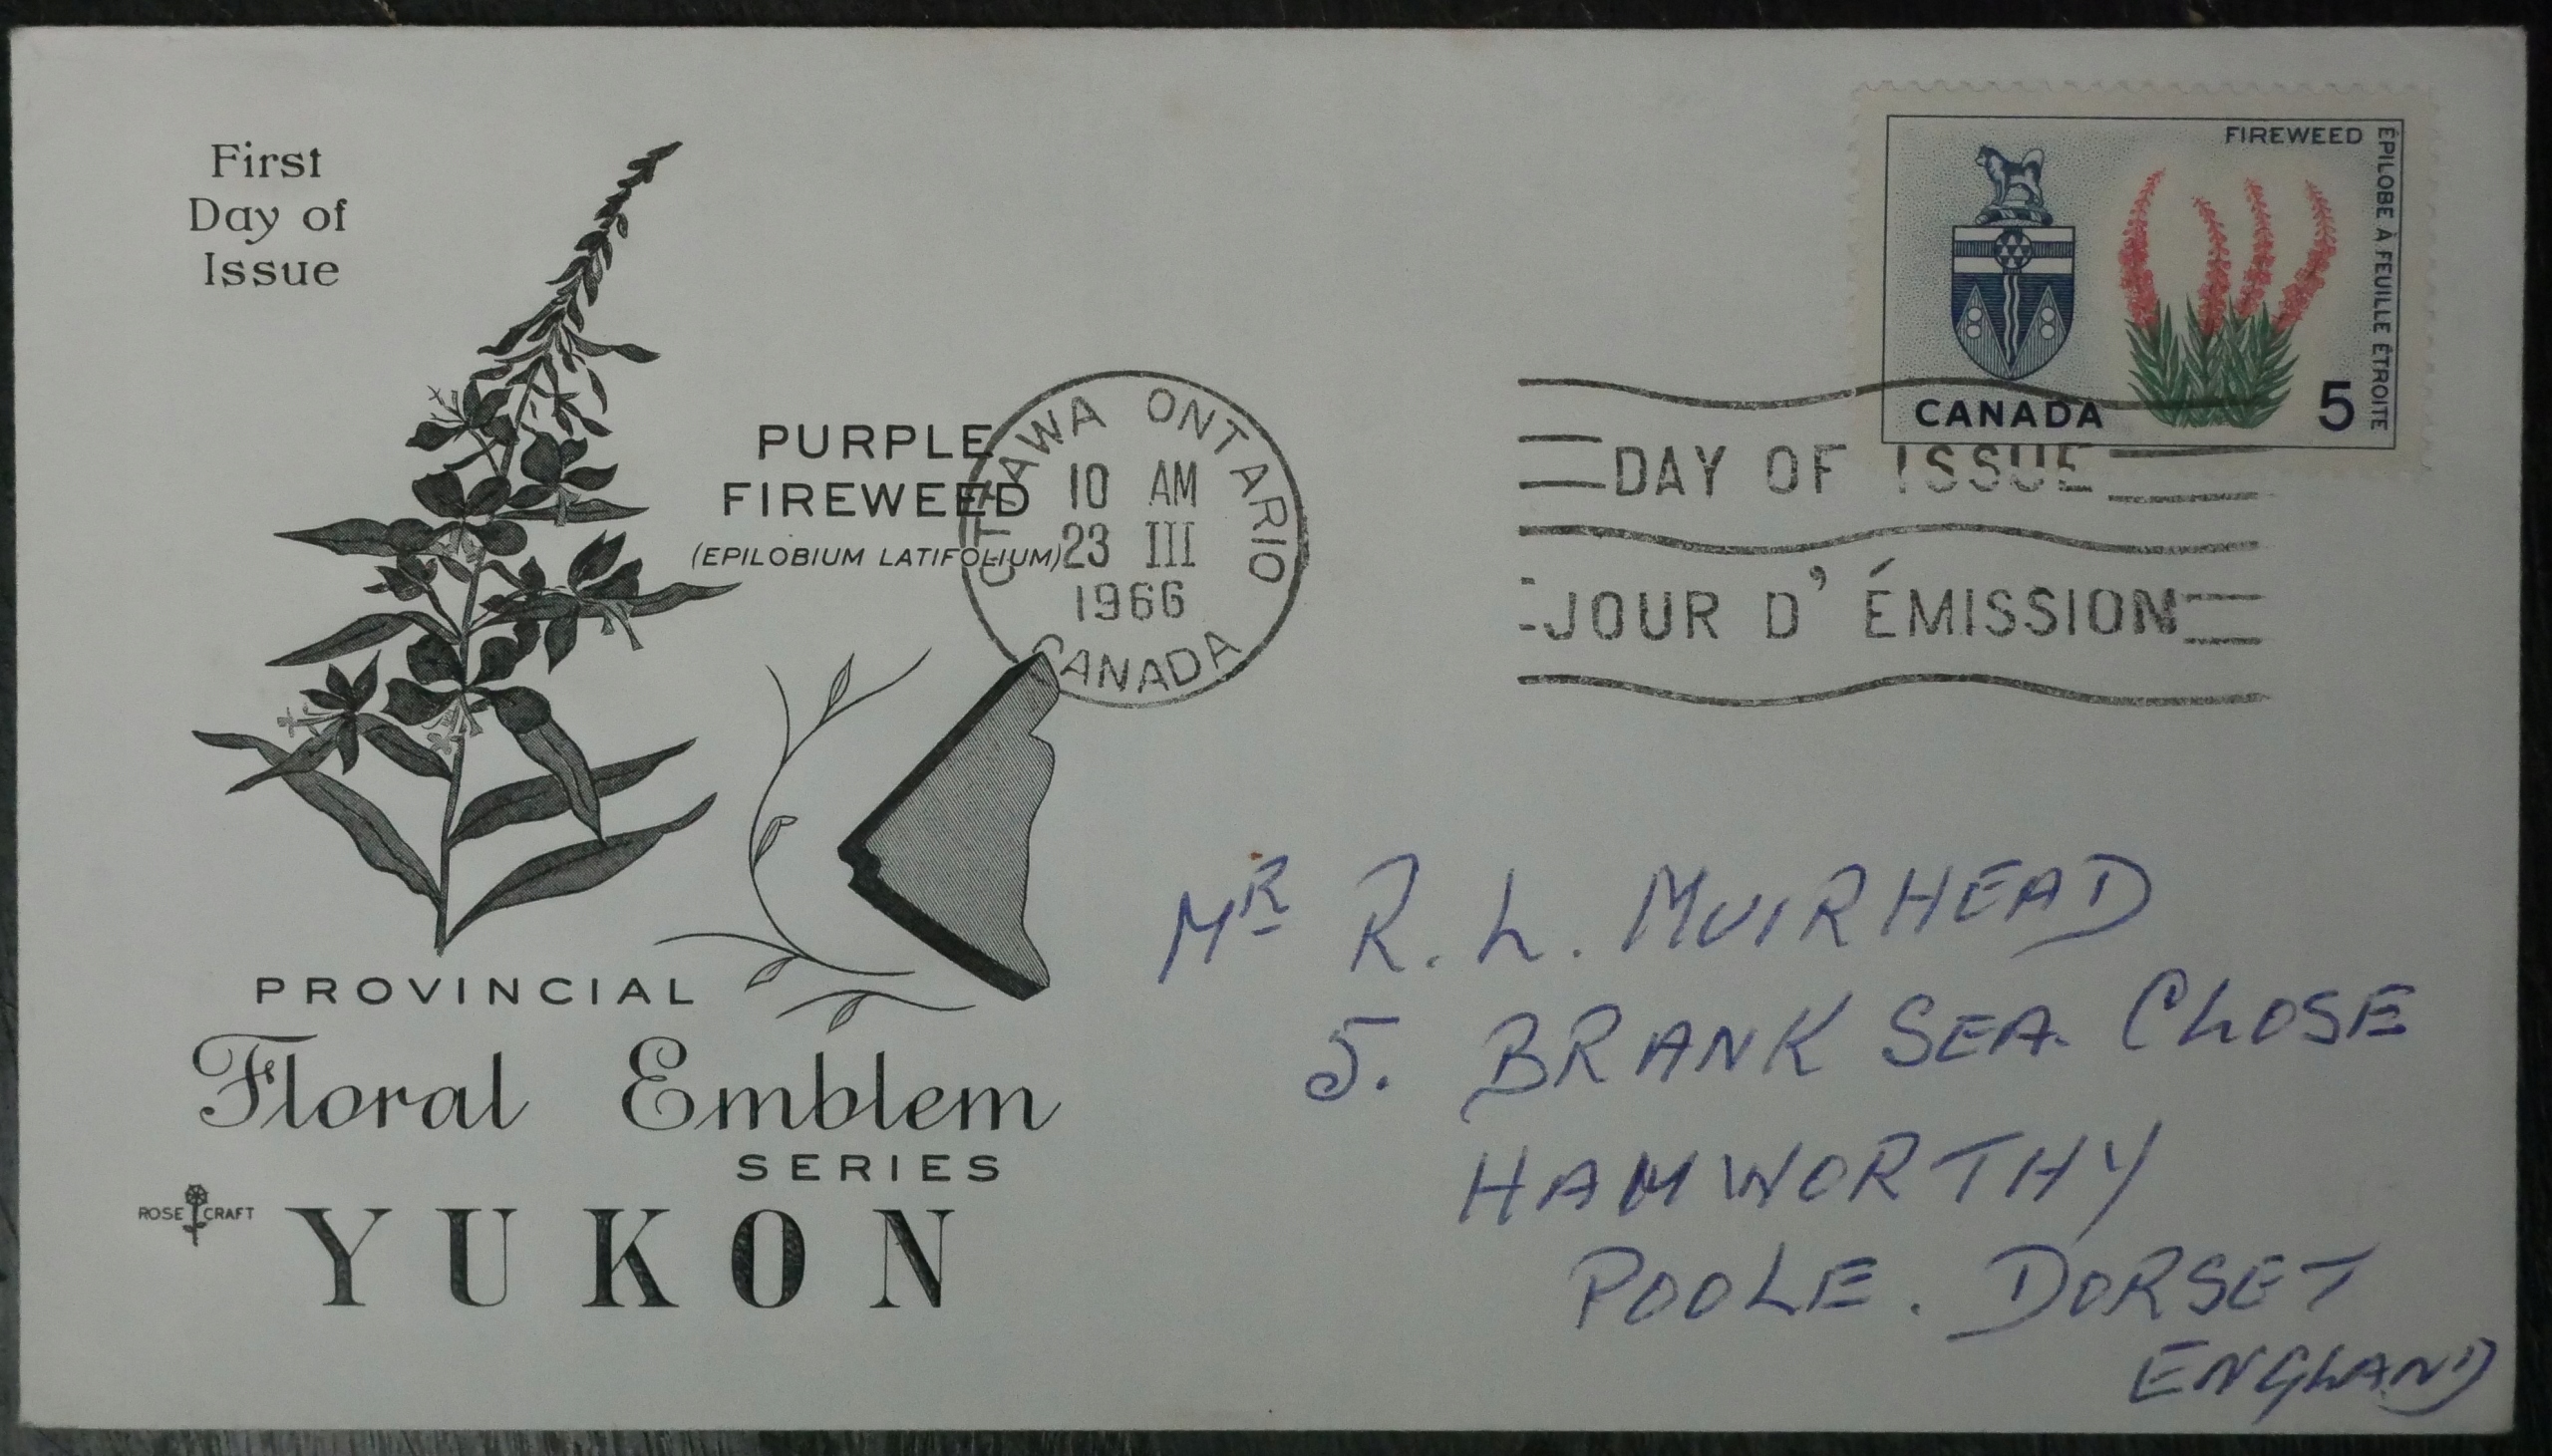 First
Day of
Issue
PURPLE
FIREWEED
(EPILOBIUM LATIFOLIUM)
OTTAWA ONTARIO
10 AM
23 III
1966
CANADA
FIREWEED
ÉPILOBE À FEUILLE ÉTROITE
CANADA
5
DAY OF ISSUE
JOUR D' ÉMISSION
MR R. L. MUIRHEAD
5. BRANK SEA. CLOSE
HAMWORTHY
POOLE. DORSET
ENGLAND
PROVINCIAL
Floral Emblem
SERIES
ROSE CRAFT
YUKON